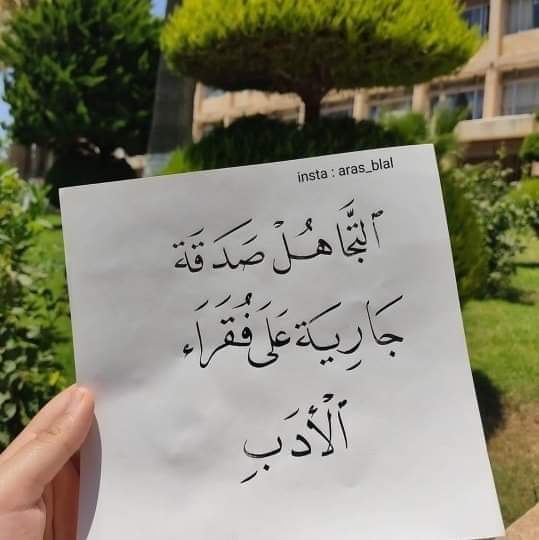 insta : aras_blal
ٱلتَّجَاهُلْ صَدَقَة
جَارِيَة عَلَى فُقَرَاء
ٱلْأَدَبِ